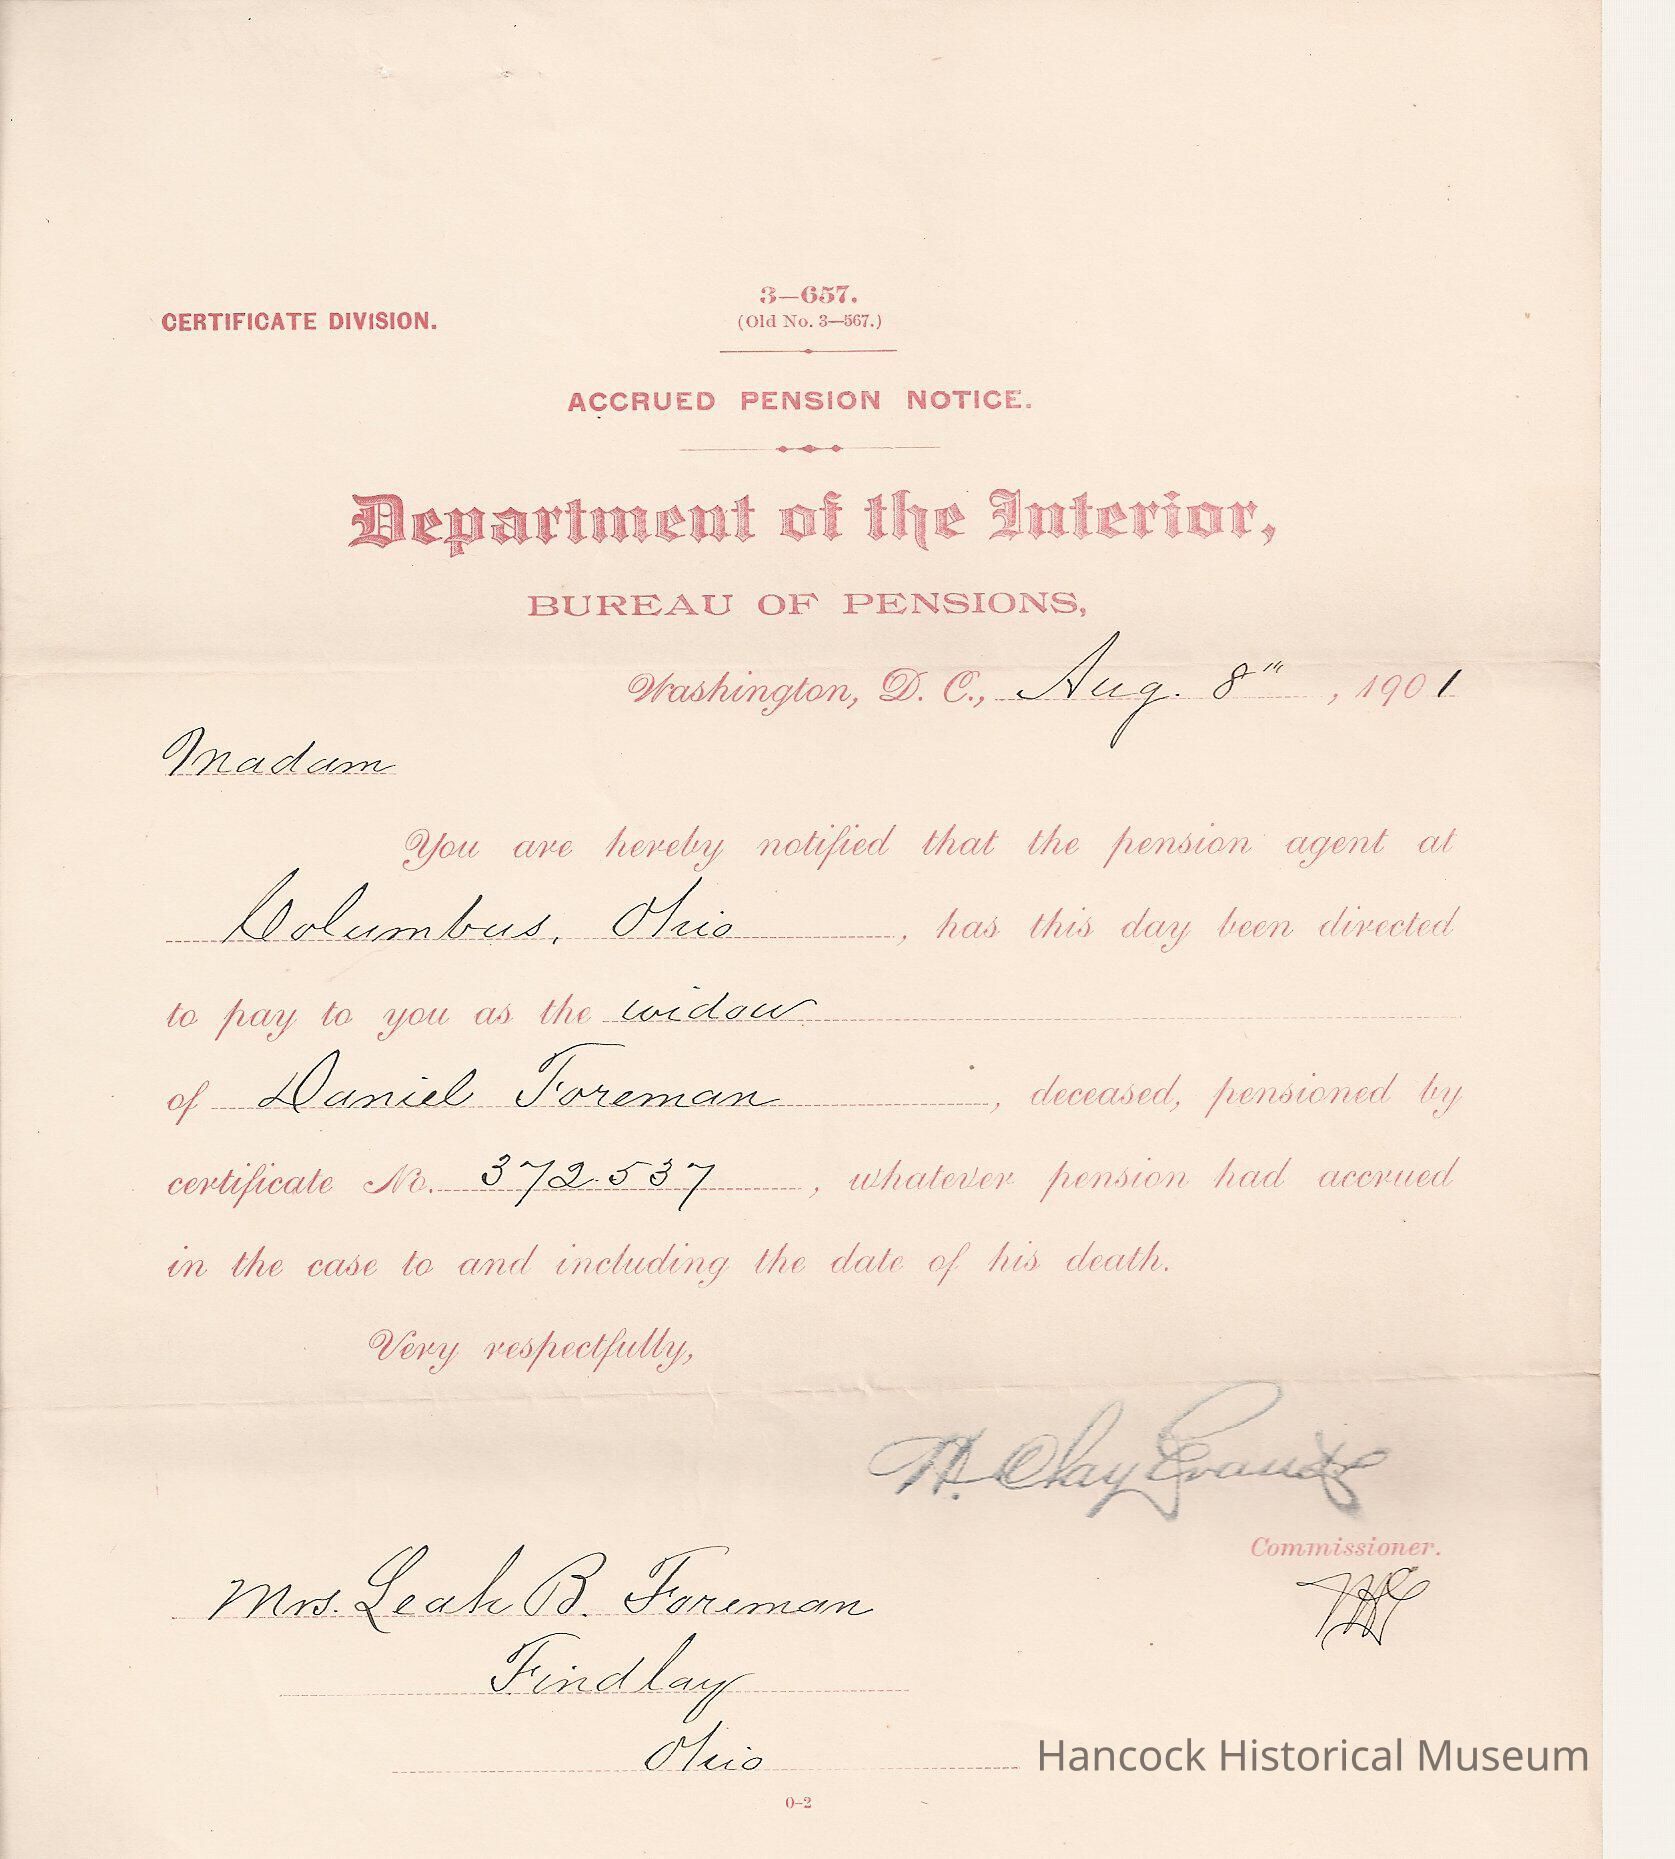 3—657.
CERTIFICATE DIVISION.
(Old No. 3—567.)
ACCRUED PENSION NOTICE.
Department of the Interior,
BUREAU OF PENSIONS,
Washington, D. C., Aug. 8th, 1901
Madam
You are hereby notified that the pension agent at
Columbus, Ohio, has this day been directed
to pay to you as the widow
of Daniel Foreman, deceased, pensioned by
certificate No. 372.537, whatever pension had accrued
in the case to and including the date of his death.
Very respectfully,
H. Clay Evans
Commissioner.
Mrs. Leah B. Foreman
Findlay
Ohio
Hancock Historical Museum
0–2